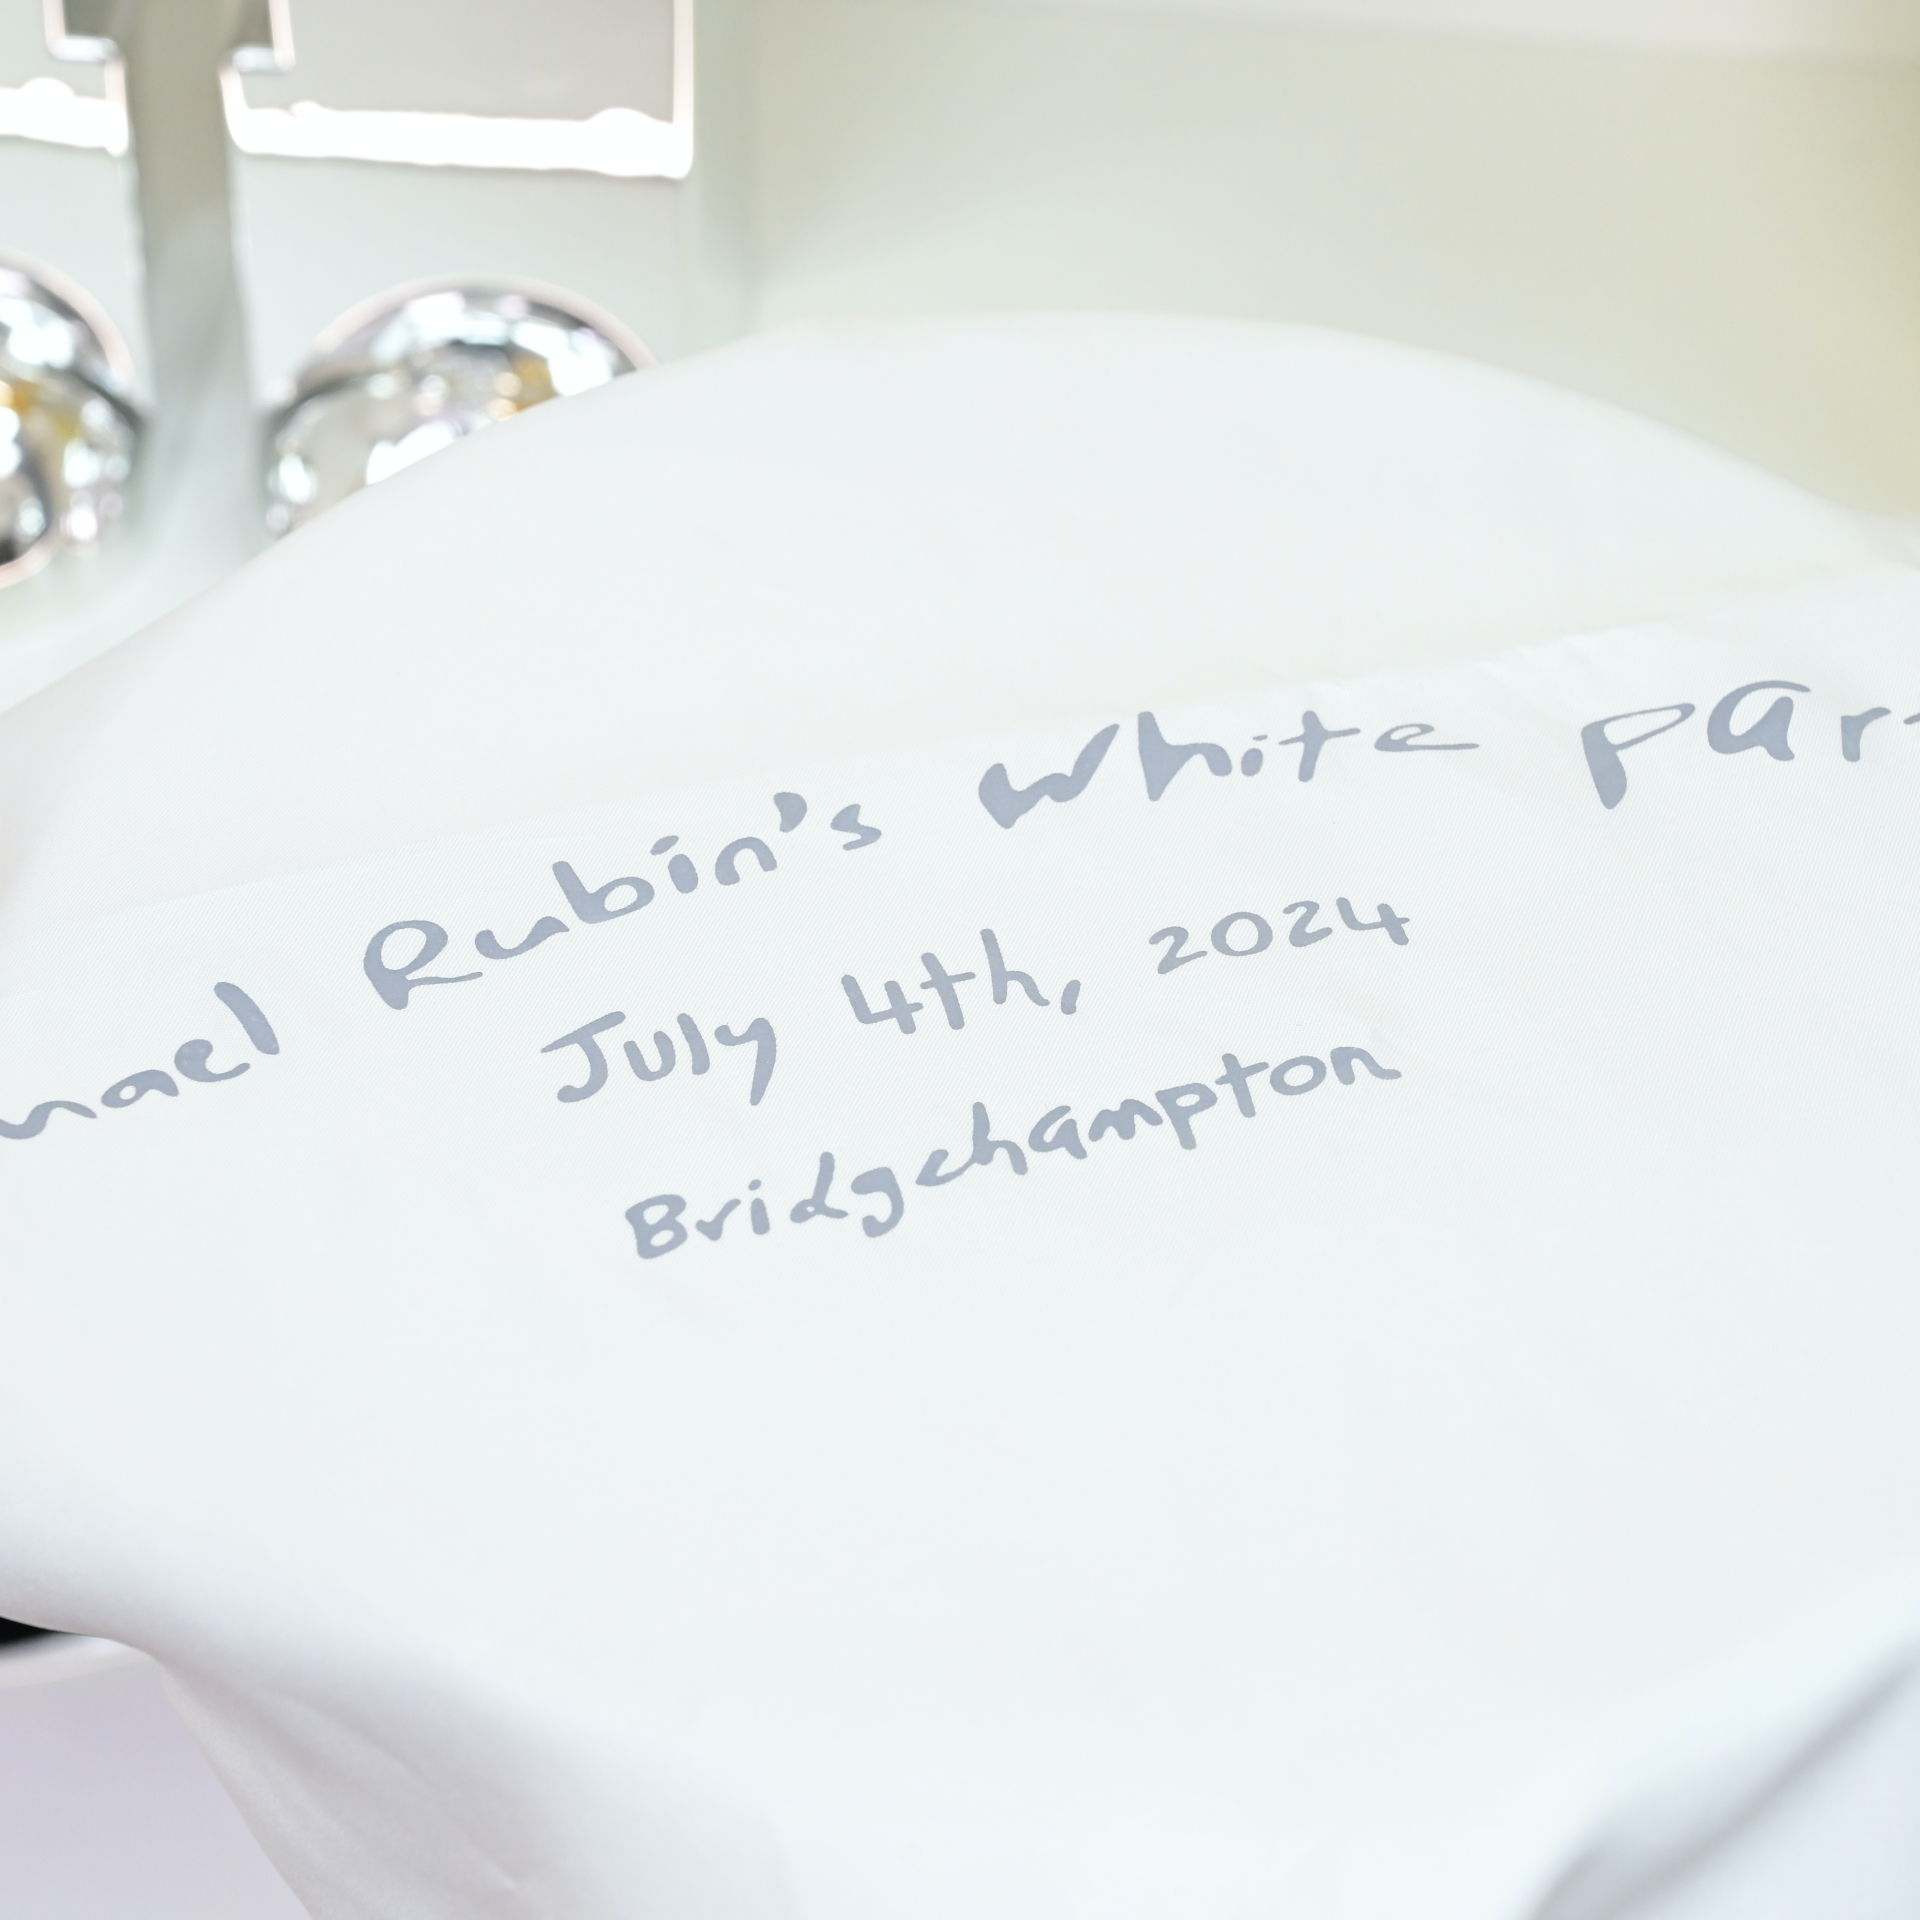 hael Rubin's White Par
July 4th, 2024
Bridgehampton